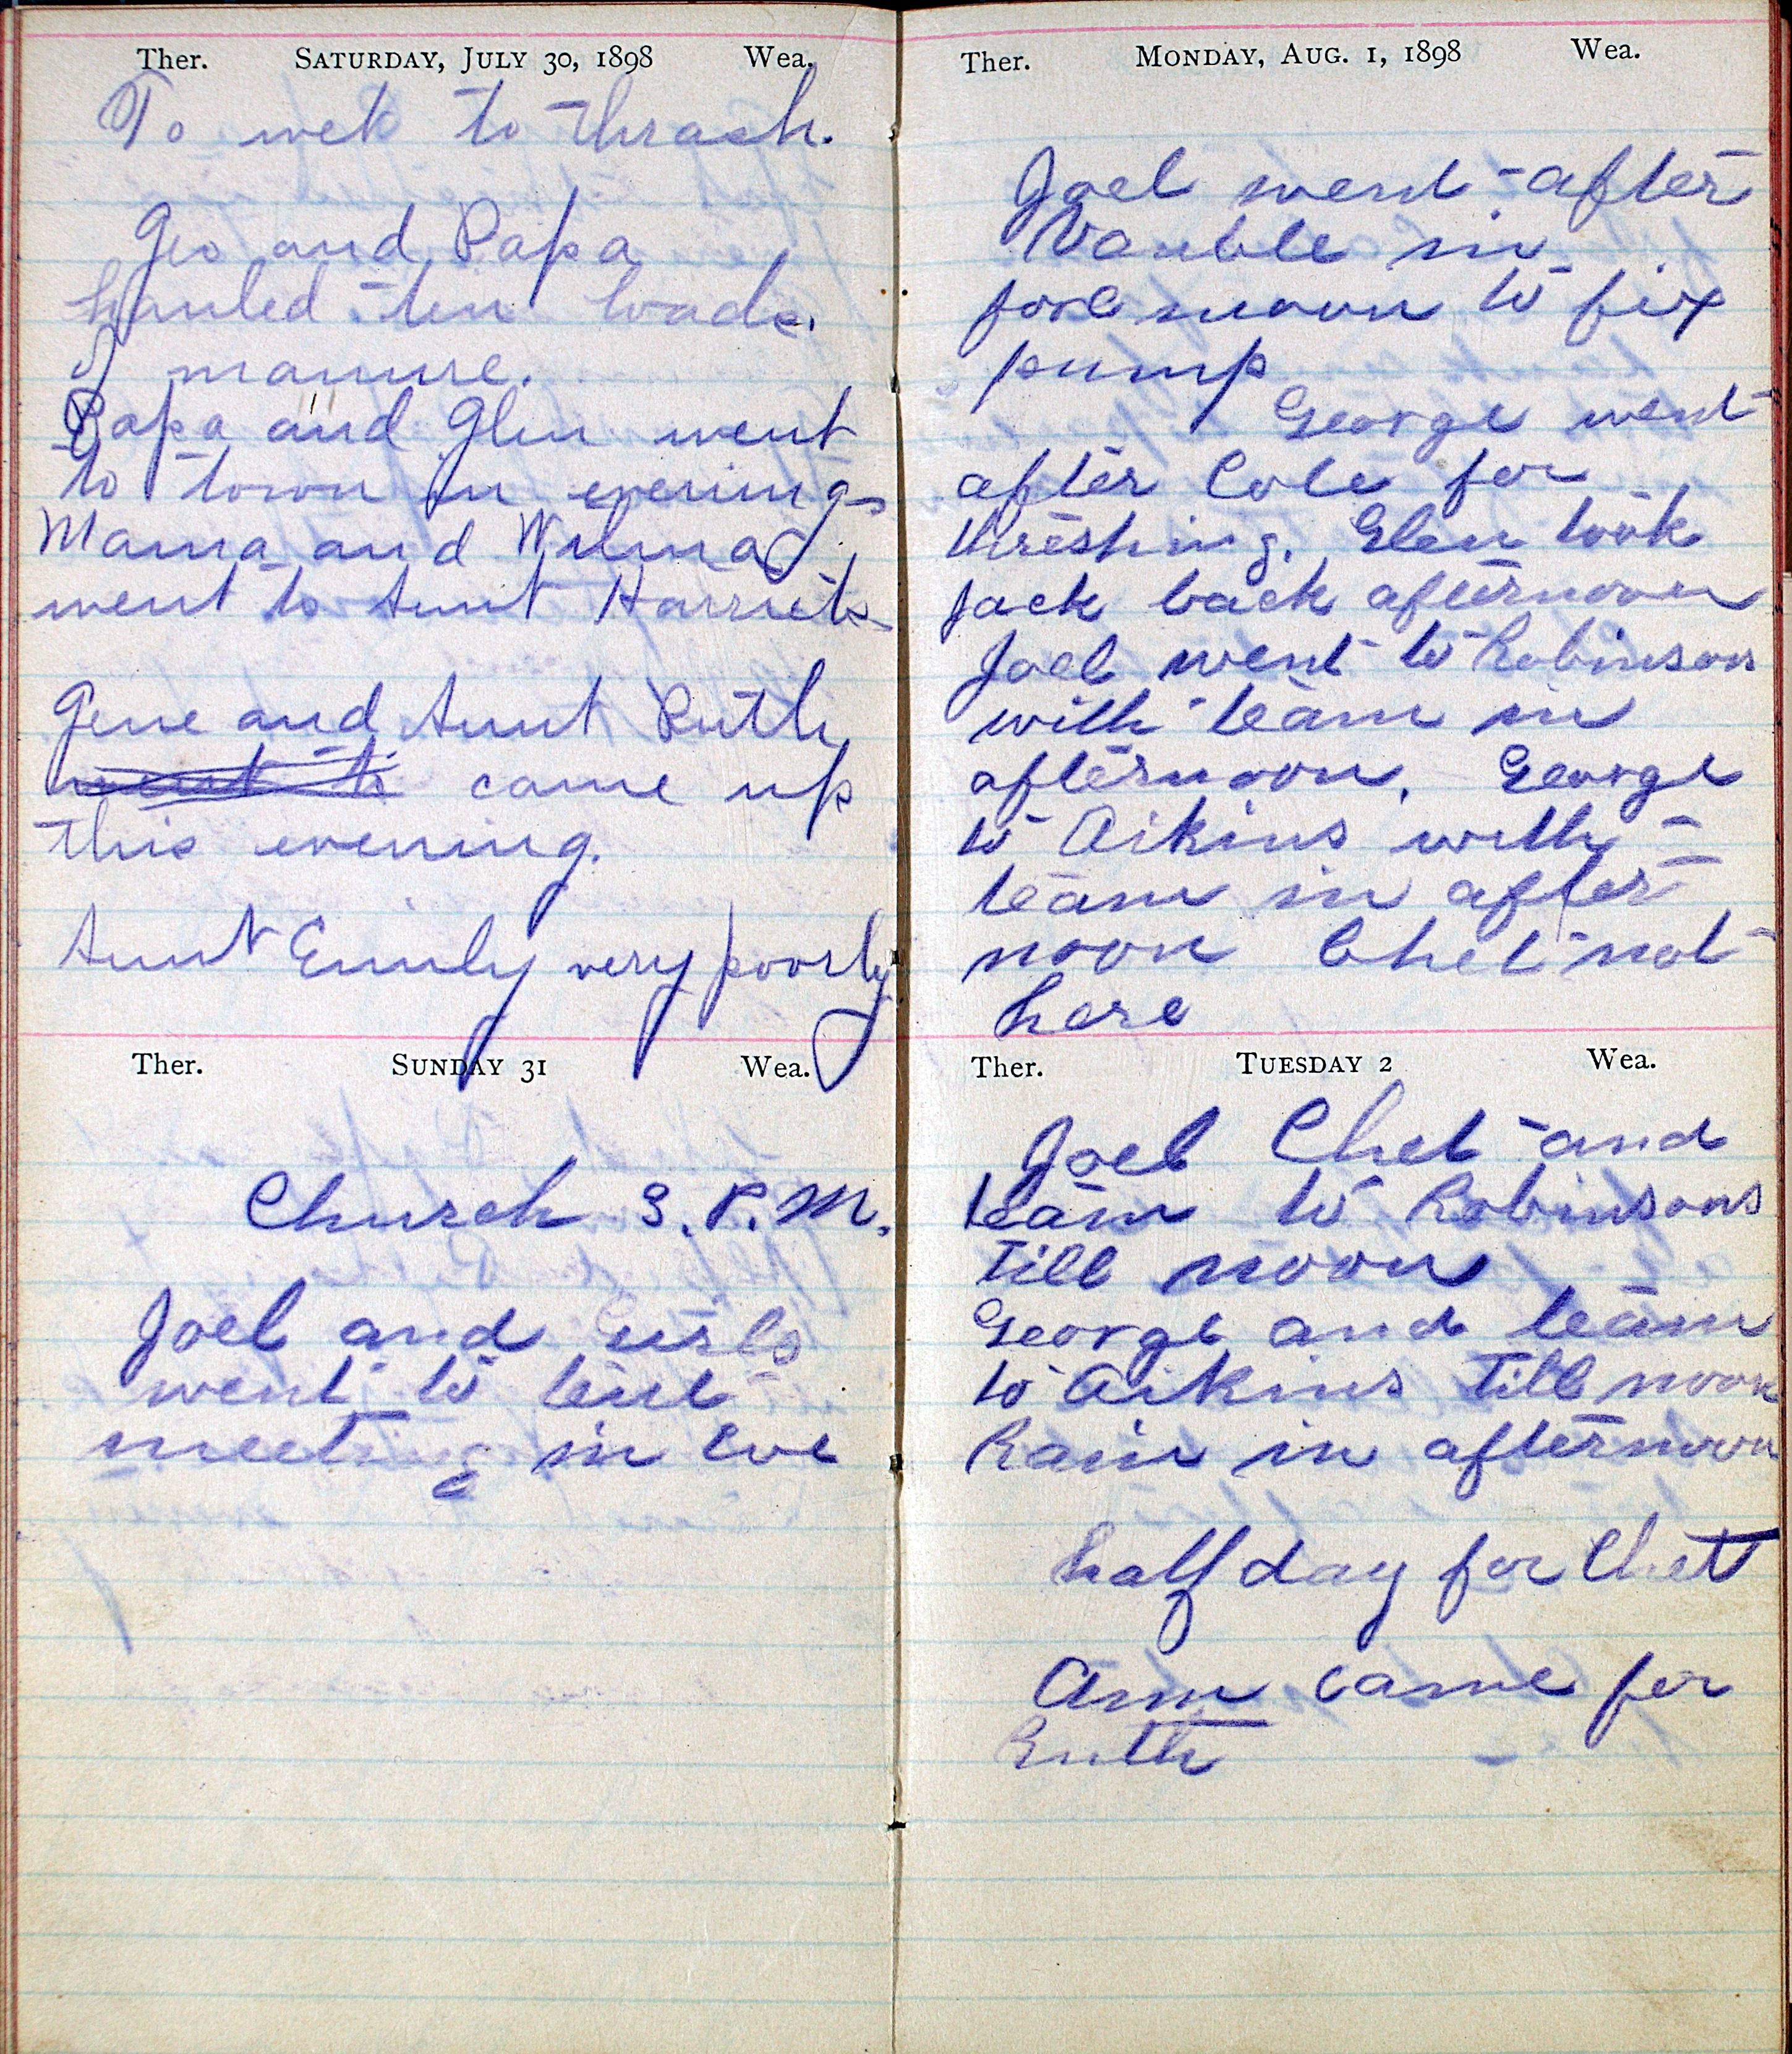 Ther. SATURDAY, JULY 30, 1898 Wea.
To wet to thrash.
Geo and Papa
hauled ten loads
of manure.
Papa and Glen went
to town in evening
Mama and Wilma
went to Aunt Harriets
Gene and Aunt Ruth
went to came up
this evening.
Aunt Emily very poorly
Ther. SUNDAY 31 Wea.
Church 3. P. M.
Joel and girls
went to tent
meeting in Eve
Ther. MONDAY, AUG. 1, 1898 Wea.
Joel went after
Vauble in
fore noon to fix
pump
George went
after Cole for
threshing. Glen took
jack back afternoon
Joel went to Robinson
with team in
afternoon. George
to Aikins with
team in after
noon Chet not
here
Ther. TUESDAY 2 Wea.
Joel Chet and
team to Robinsons
till noon
George and team
to Aikins till noon
Rain in afternoon
half day for Chet
Ann came for
Ruth